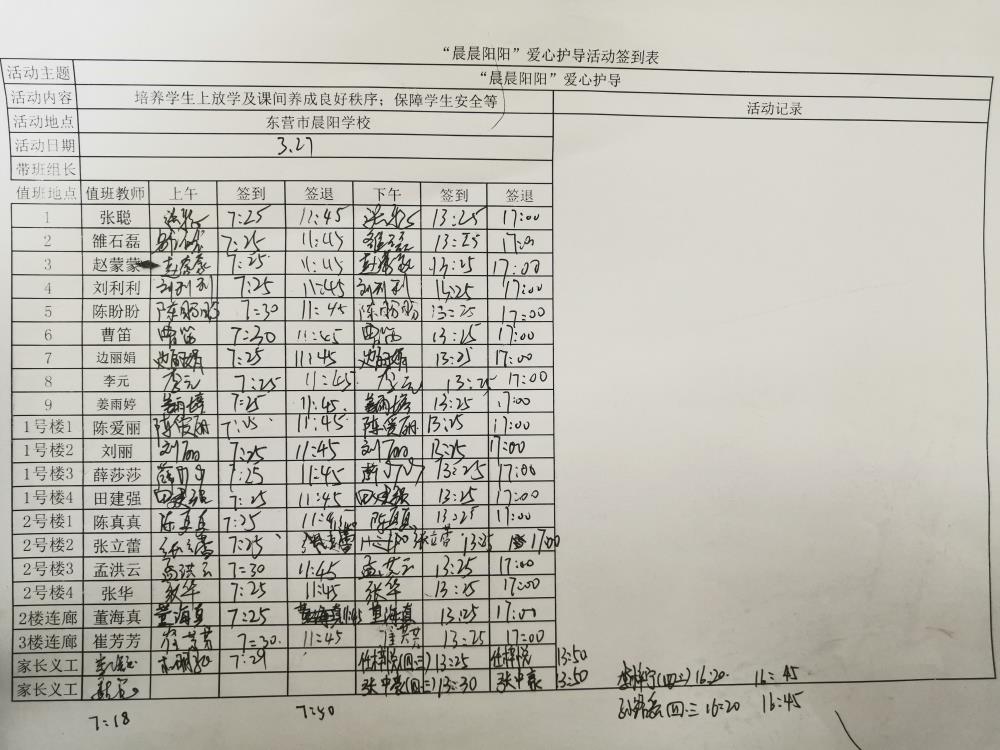 “晨晨阳阳”爱心护导活动签到表
活动主题 “晨晨阳阳”爱心护导
活动内容 培养学生上放学及课间养成良好秩序；保障学生安全等 活动记录
活动地点 东营市晨阳学校
活动日期 3.27
带班组长
值班地点 值班教师 上午 签到 签退 下午 签到 签退
1 张聪 张聪 7:25 11:45 张聪 13:25 17:00
2 雒石磊 7:25 11:45 13:25 17:00
3 赵蒙蒙 赵蒙蒙 7:25 11:45 赵蒙蒙 13:25 17:00
4 刘利利 刘利利 7:25 11:45 刘利利 13:25 17:00
5 陈盼盼 陈盼盼 7:30 11:45 陈盼盼 13:25 17:00
6 曹笛 曹笛 7:30 11:45 曹笛 13:25 17:00
7 边丽娟 边丽娟 7:25 11:45 边丽娟 13:25 17:00
8 李元 李元 7:25 11:45 李元 13:25 17:00
9 姜雨婷 姜雨婷 7:25 11:45 姜雨婷 13:25 17:00
1号楼1 陈爱丽 陈爱丽 7:25 11:45 陈爱丽 13:25 17:00
1号楼2 刘丽 刘丽 7:25 11:45 刘丽 13:25 17:00
1号楼3 薛莎莎 薛莎莎 7:25 11:45 薛莎莎 13:25 17:00
1号楼4 田建强 田建强 7:25 11:45 田建强 13:25 17:00
2号楼1 陈真真 陈真真 7:25 11:45 陈真真 13:25 17:00
2号楼2 张立蕾 张立蕾 7:25 张立蕾 张立蕾 13:25 17:00
2号楼3 孟洪云 孟洪云 7:30 11:45 孟洪云 13:25 17:00
2号楼4 张华 张华 7:25 11:45 张华 13:25 17:00
2楼连廊 董海真 董海真 7:25 董海真 11:45 董海真 13:25 17:00
3楼连廊 崔芳芳 崔芳芳 7:30 11:45 崔芳芳 13:25 17:00
家长义工 7:29 (四三) 13:25 13:50
家长义工 张中豪(四三) 13:30 张中豪 13:50
(四三) 16:20 16:45
7:18 7:40 (四三) 16:20 16:45